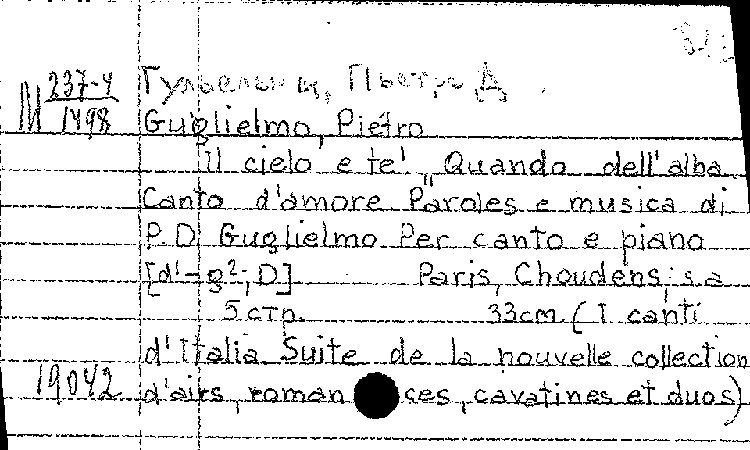 М 237-4
1498
Гульельмо, Пьетро Д.
Guglielmo, Pietro
Il cielo e te! „Quando dell'alba
Canto d'amore Paroles e musica di
P.D. Guglielmo Per canto e piano
[d¹-g²; D] Paris, Choudens, s.a
5 стр. 33cm (I canti
d'Italia Suite de la nouvelle collection
19042 d'airs, romances, cavatines et duos)